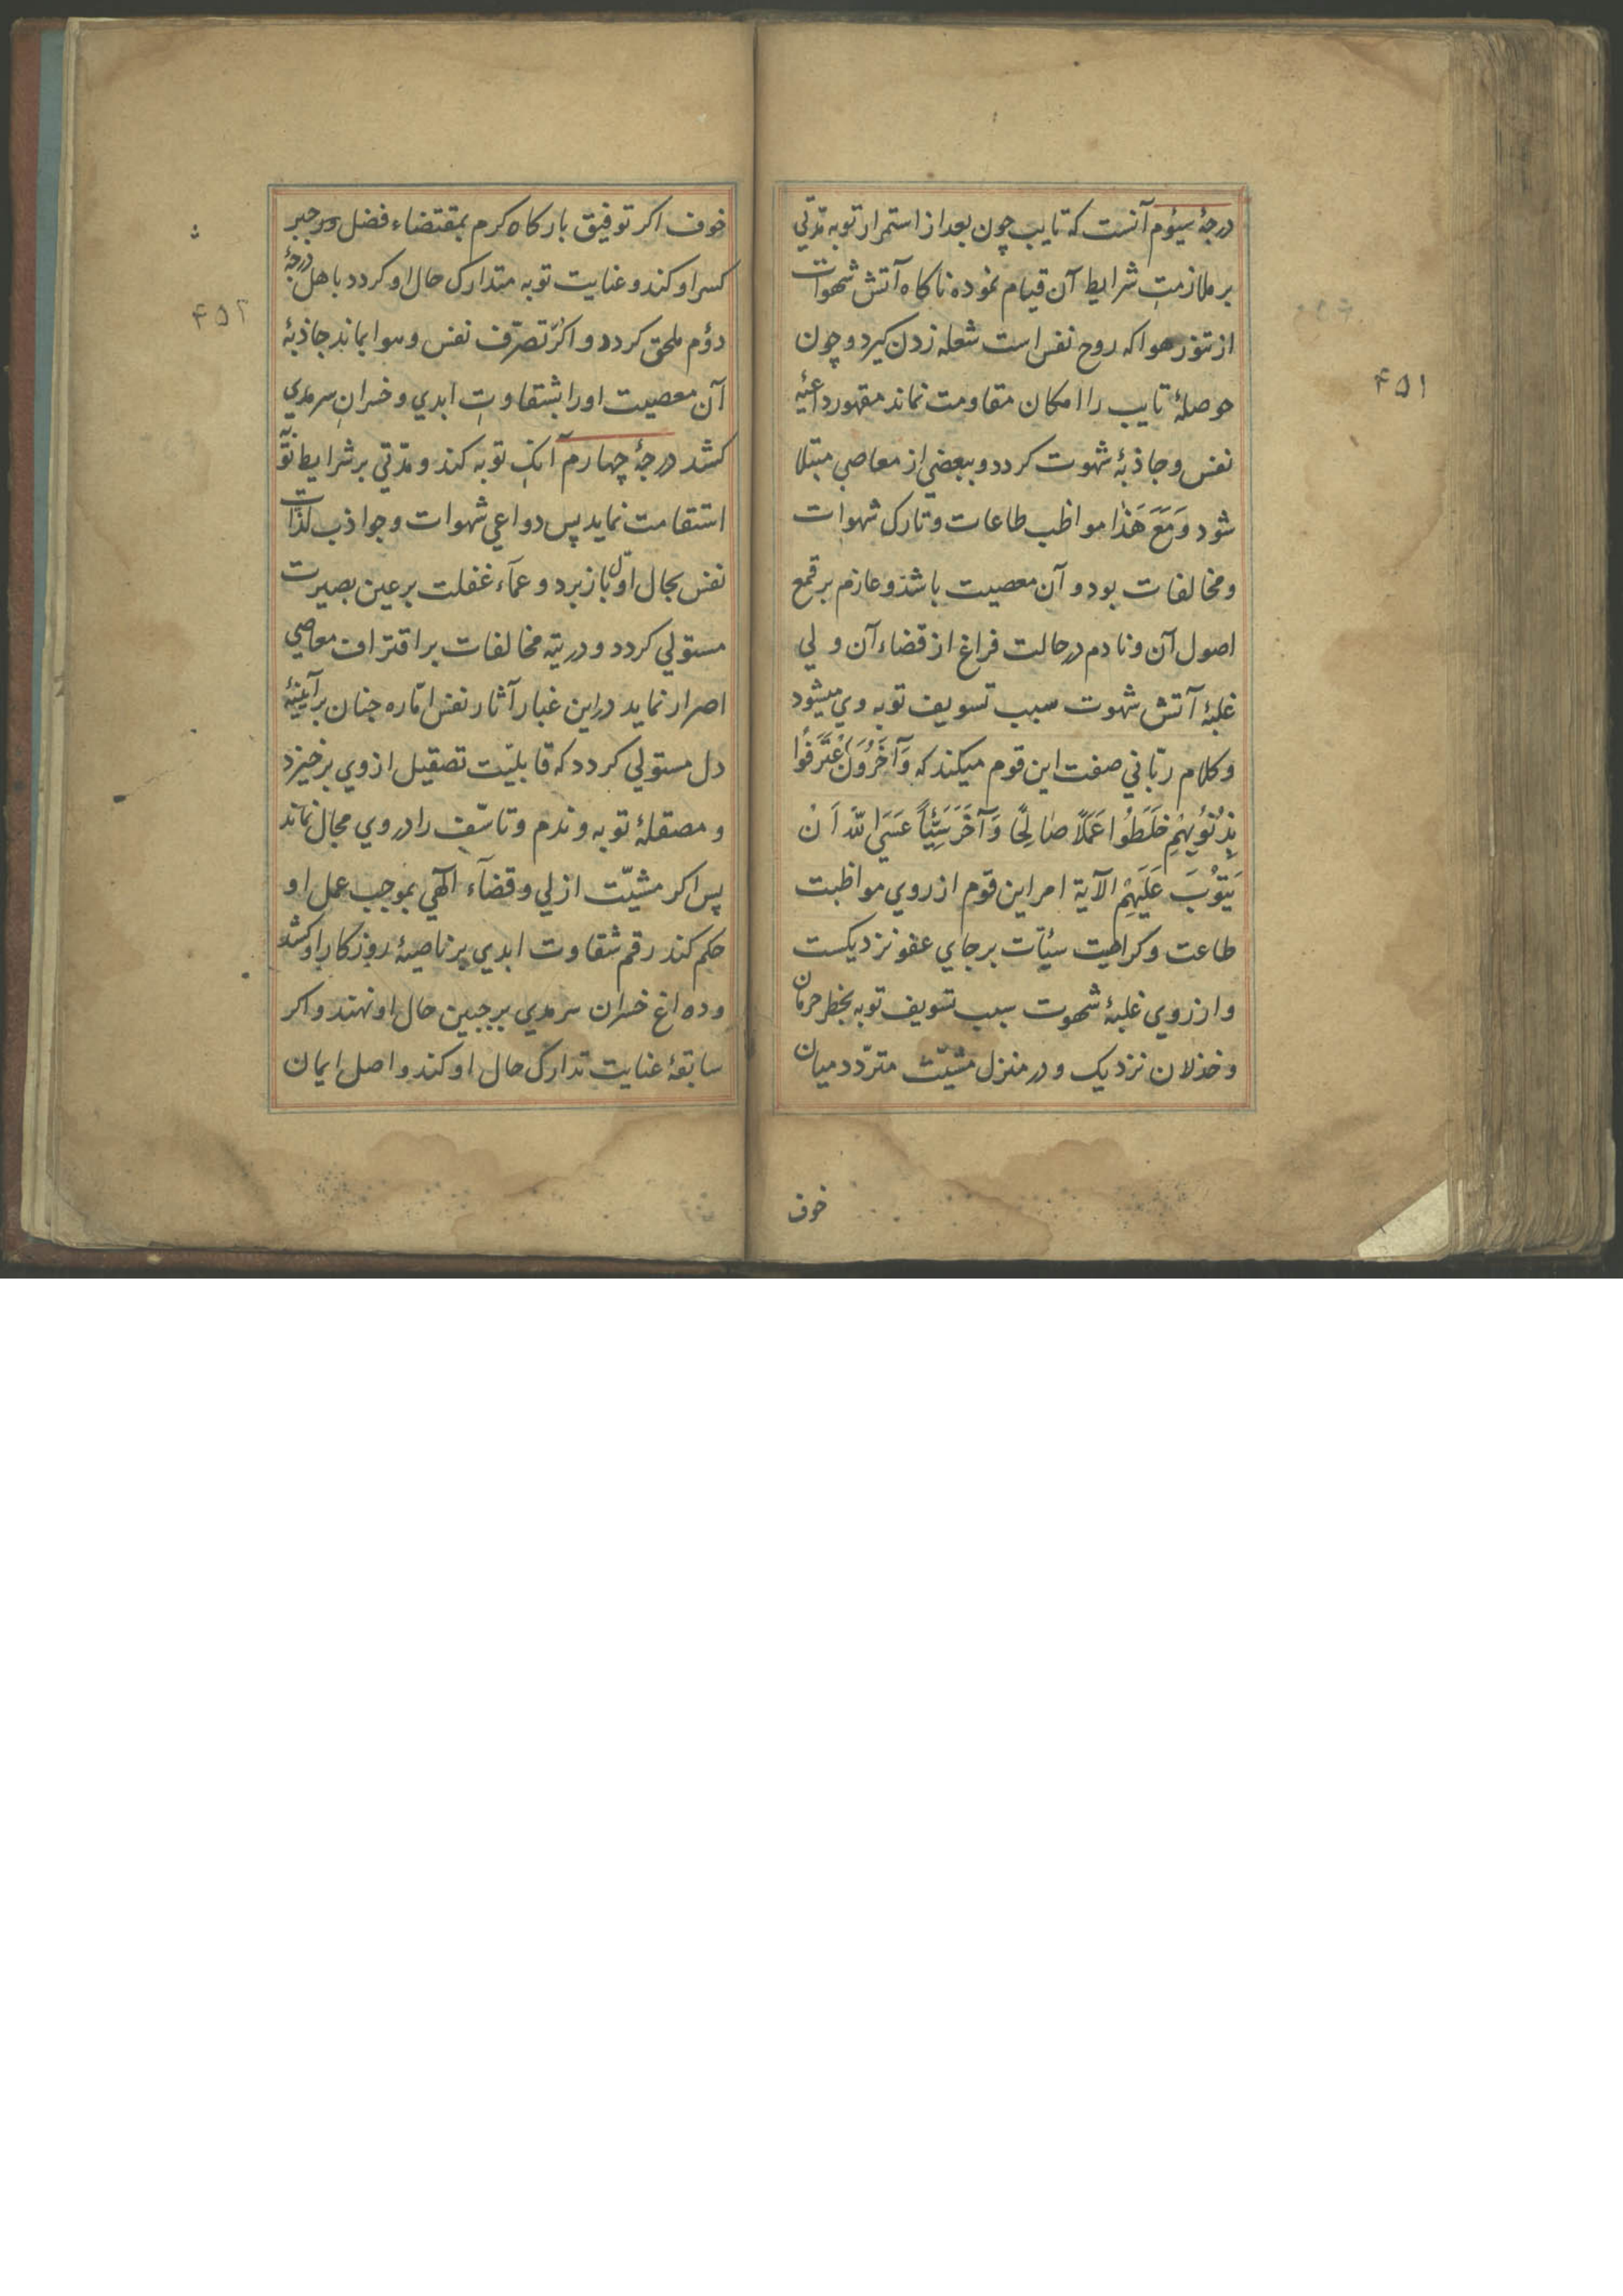 درجهٔ سیوم آنست که تایب چون بعد از استمرار توبه مدتی
بر ملازمتِ شرایط آن قیام نموده ناکاه آتش شهوات
از تنور هوا که روح نفس است شعله زدن کیرد و چون
حوصلهٔ تایب را امکان مقاومت نماند مقهور داعیهٔ
نفس و جاذبهٔ شهوت کردد و ببعضی از معاصی مبتلا
شود وَمَعَ هَذٰا مواظب طاعات و تارک شهوات
و مخالفات بود و آن معصیت باشد و عازم بر قمع
اصول آن و نادم در حالت فراغ از قضاء آن ولی
غلبهٔ آتش شهوت سبب تسویف توبه وی میشود
و کلام ربّانی صفت این قوم میکند که وَآخَرُونَ اعْتَرَفُوا
بِذُنُوبِهِمْ خَلَطُوا عَمَلاً صٰالِحًا وَآخَرَ سَیِّئاً عَسَی اللّٰه اَنْ
یَتُوْبَ عَلَیْهِمْ الآیة امر این قوم از روی مواظبت
طاعت و کراهیت سیٔات بر جای عفو نزدیکست
و از روی غلبهٔ شهوت سبب تسویف توبه بخطر حرمان
و خذلان نزدیک و در منزل مشیّت متردّد میان
خوف
۴۵۱
خوف اکر توفیق بارکاه کرم بمقتضاء فضل و جبر
کسر او کند و عنایت توبه متدارک حال او کردد باهل درجهٔ
دؤم ملحق کردد و اکر تصرّف نفس و هوا بماند جاذبهٔ
آن معصیت او را بشقاوتِ ابدی و خسرانِ سرمدی
کشد درجهٔ چهارم آنک توبه کند و مدتی بر شرایط توبه
استقامت نماید پس دواعی شهوات و جواذب لذّات
نفس بحال اوّل باز برد و عمآء غفلت بر عین بصیرت
مستولی کردد و در تیه مخالفات بر اقتراف معاصی
اصرار نماید در این غبار آثار نفس امّاره چنان بر آیینهٔ
دل مستولی کردد که قابلیّت تصقیل از وی برخیزد
و مصقلهٔ توبه و ندم و تاسّف را در وی مجال نماند
پس اکر مشیّت ازلی و قضآء الٓهی بموجب عمل او
حکم کند رقم شقاوت ابدی بر ناصیهٔ روزکار او کشد
و داغ خسران سرمدی بر جبین حال او نهند و اکر
سابقهٔ عنایت تدارک حال او کند و اصل ایمان
۴۵۲